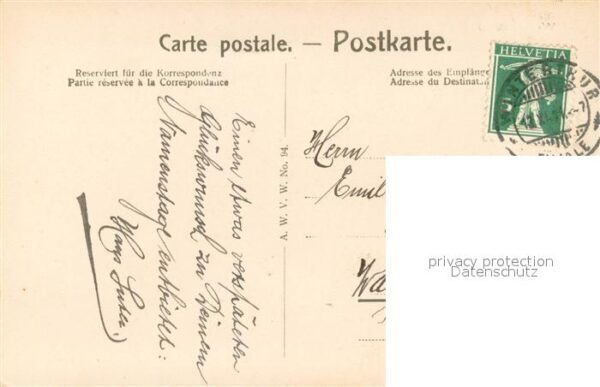 Carte postale. — Postkarte.
Reserviert für die Korrespondenz
Partie réservée à la Correspondance
Adresse des Empfänge
Adresse du Destinat
HELVETIA
WINTERTHUR
FILIALE
A. W. V. W. No. 94.
Einen etwas verspäteten
Glückwunsch zu Deinem
Namenstage entbietet:
Hans Suter.
Herrn
Emil
Wa
privacy protection
Datenschutz